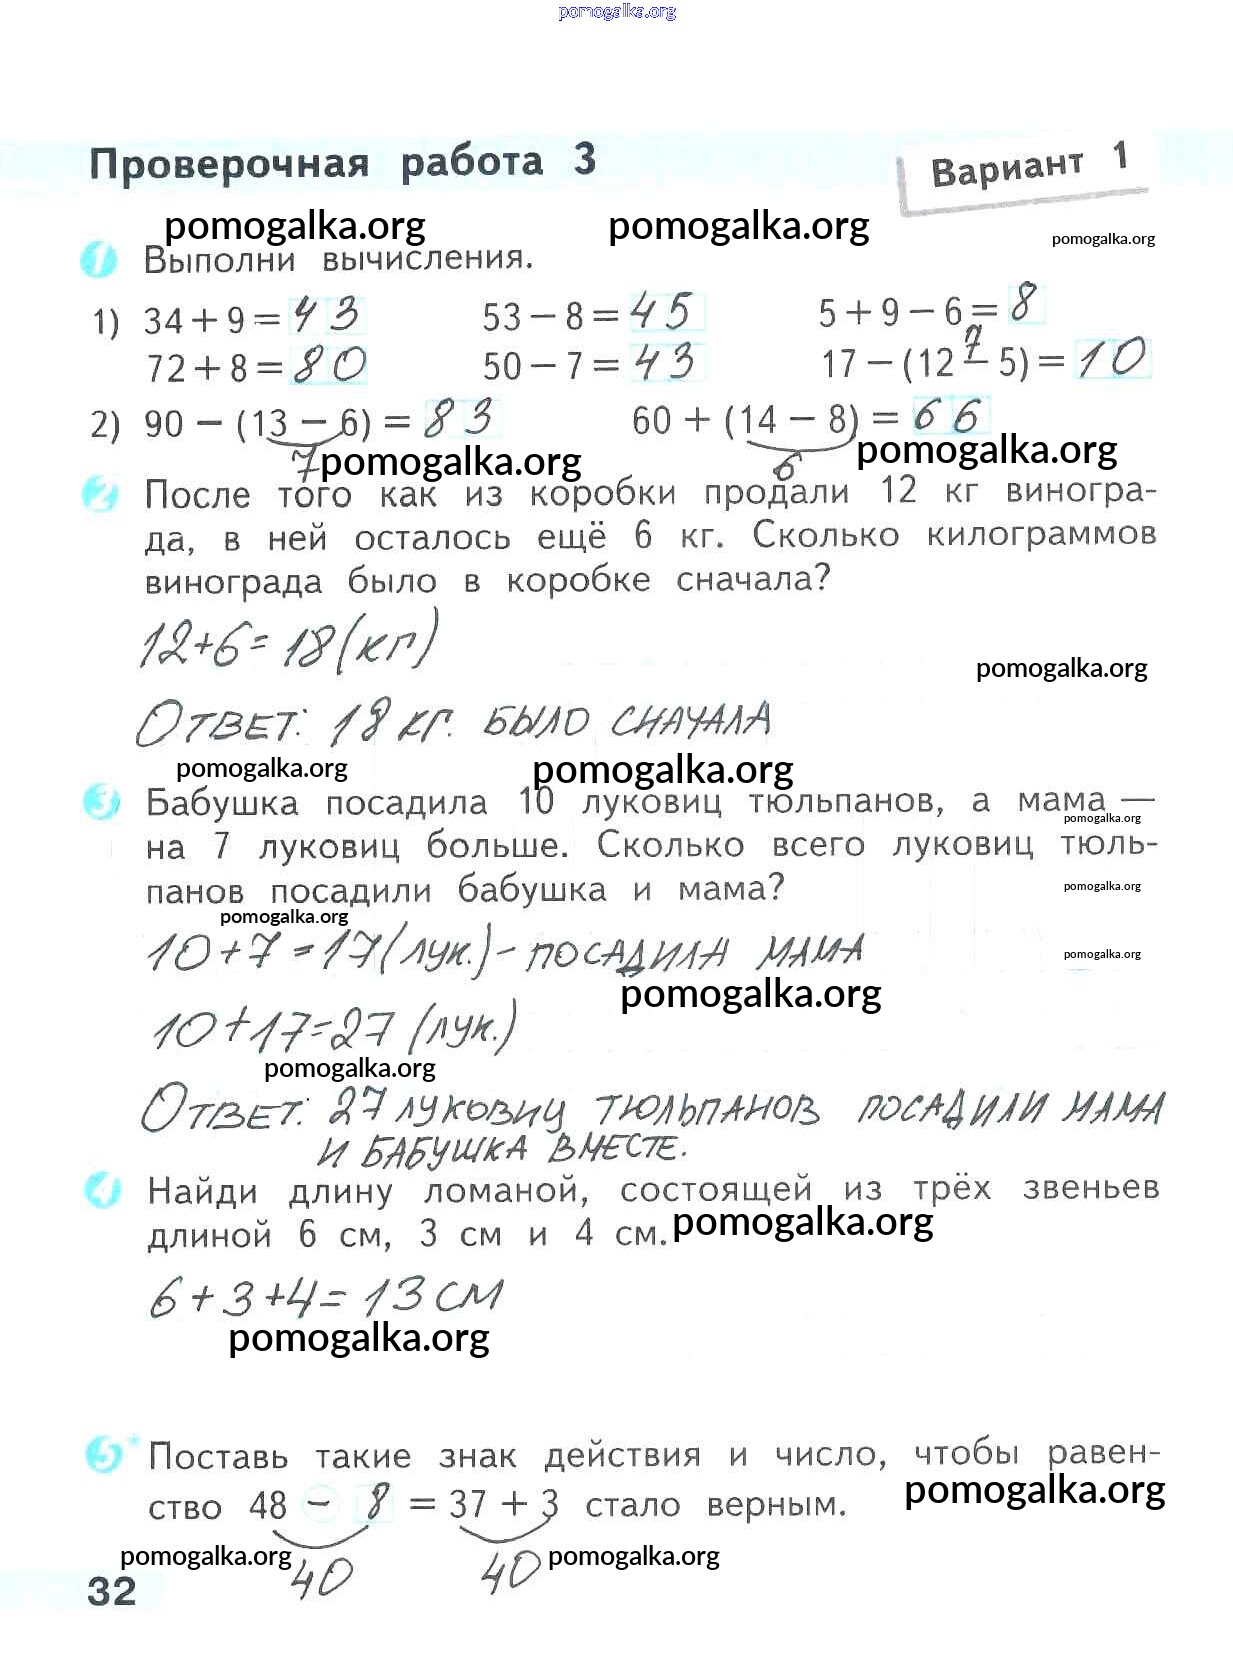 pomogalka.org
Проверочная работа 3
Вариант 1
pomogalka.org pomogalka.org
pomogalka.org
1 Выполни вычисления.
1) 34 + 9 = 43 53 − 8 = 45 5 + 9 − 6 = 8
7
72 + 8 = 80 50 − 7 = 43 17 − (12 − 5) = 10
2) 90 − (13 − 6) = 83 60 + (14 − 8) = 66
7 pomogalka.org 6 pomogalka.org
2 После того как из коробки продали 12 кг виногра-
да, в ней осталось ещё 6 кг. Сколько килограммов
винограда было в коробке сначала?
12+6=18(кг)
pomogalka.org
Ответ: 18 кг. было сначала
pomogalka.org pomogalka.org
3 Бабушка посадила 10 луковиц тюльпанов, а мама —
pomogalka.org
на 7 луковиц больше. Сколько всего луковиц тюль-
панов посадили бабушка и мама?
pomogalka.org
pomogalka.org
10+7=17(лук.)- посадила мама
pomogalka.org
pomogalka.org
10+17=27 (лук.)
pomogalka.org
Ответ: 27 луковиц тюльпанов посадили мама
и бабушка вместе.
4 Найди длину ломаной, состоящей из трёх звеньев
длиной 6 см, 3 см и 4 см.
pomogalka.org
6+3+4=13 см
pomogalka.org
5* Поставь такие знак действия и число, чтобы равен-
pomogalka.org
ство 48 − 8 = 37 + 3 стало верным.
pomogalka.org 40 40 pomogalka.org
32